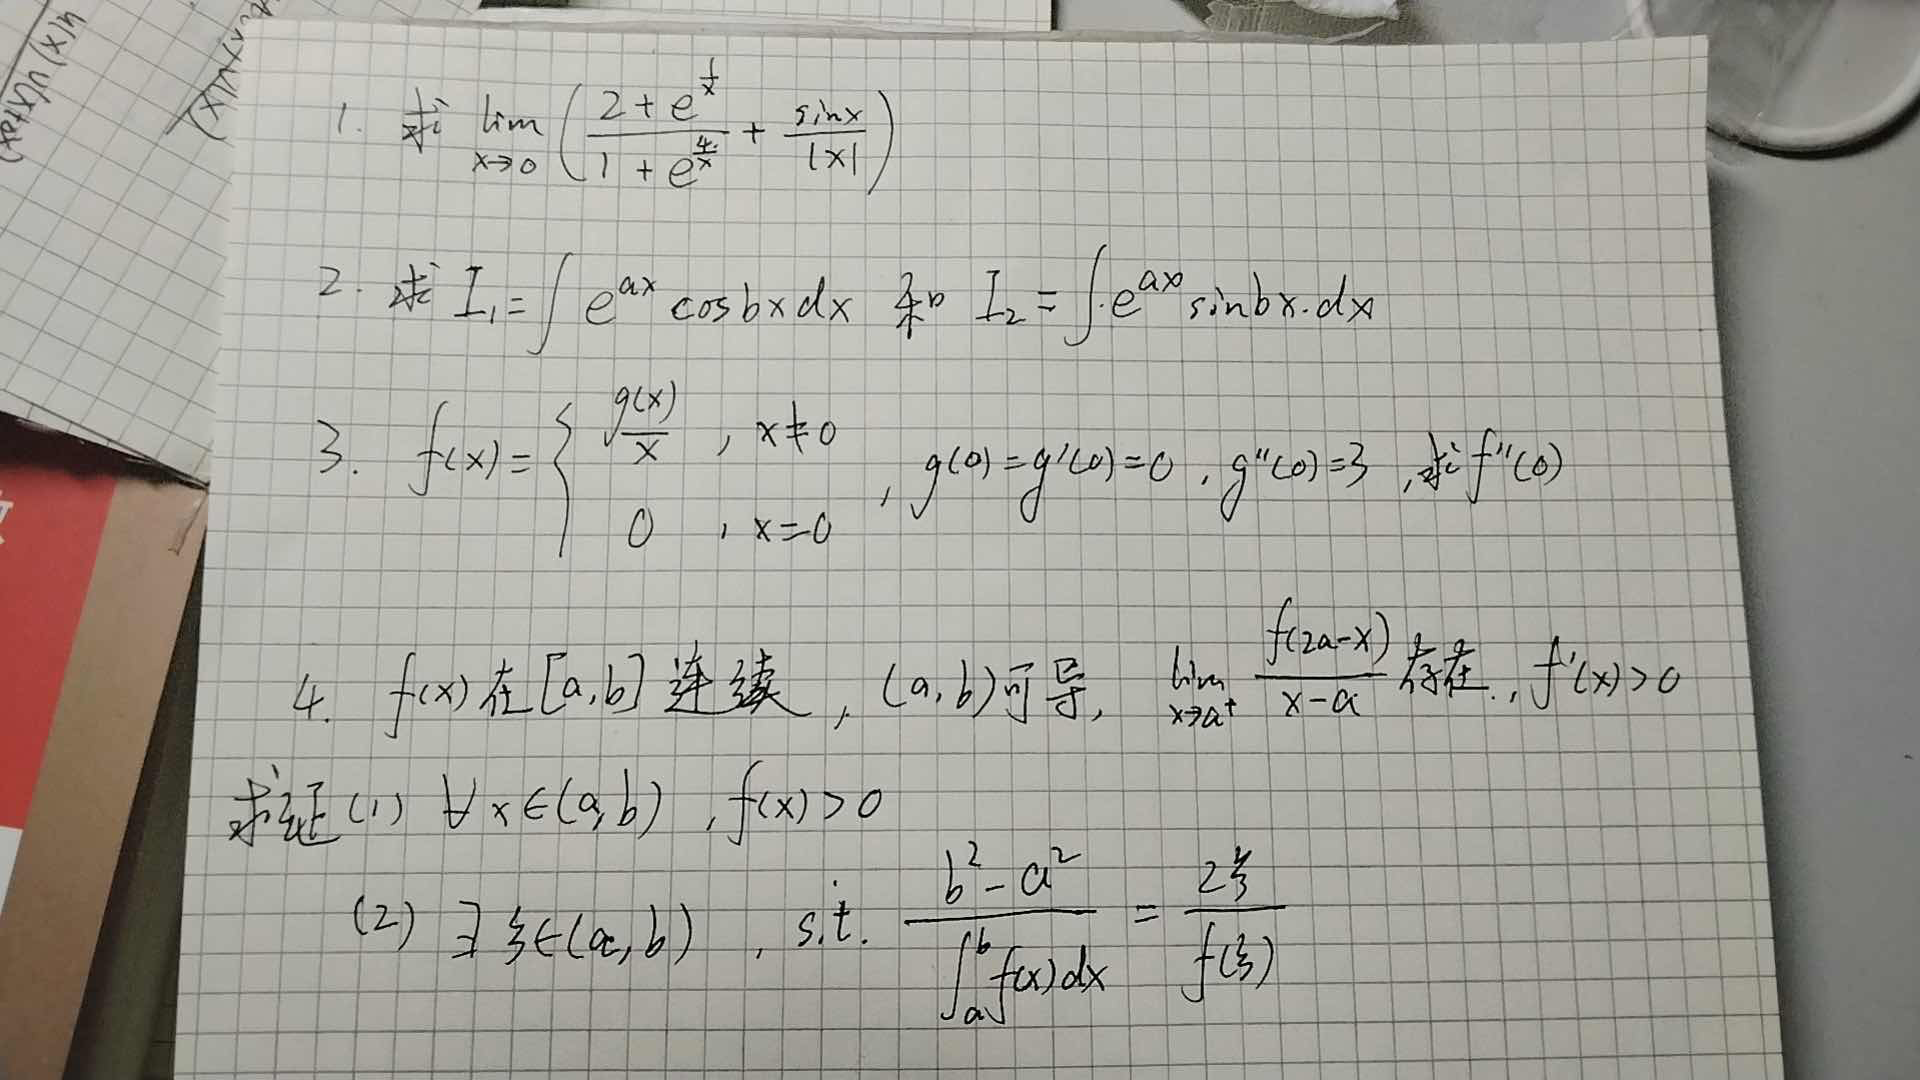 u(x) v(x+Δx)
1. 求 lim_{x→0} ( (2 + e^{1/x}) / (1 + e^{4/x}) + sinx / |x| )
2. 求 I₁ = ∫ e^{ax} cosbx dx 和 I₂ = ∫ e^{ax} sinbx·dx
3. f(x) = { g(x)/x , x≠0
0 , x=0 , g(0) = g'(0) = 0 , g''(0) = 3 , 求 f''(0)
4. f(x) 在 [a,b] 连续 , (a,b) 可导, lim_{x→a⁺} f(2a-x) / (x-a) 存在, f'(x) > 0
求证 (1) ∀ x ∈ (a,b) , f(x) > 0
(2) ∃ ξ ∈ (a,b) , s.t. (b² - a²) / ∫_a^b f(x)dx = 2ξ / f(ξ)